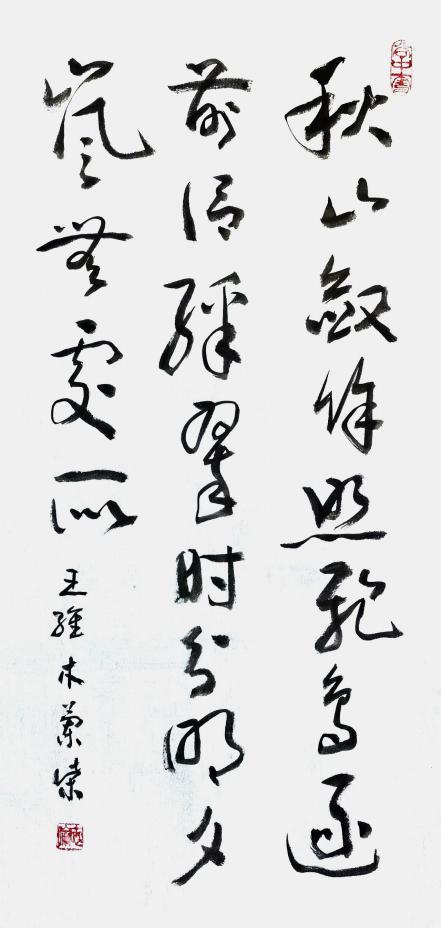 秋山斂餘照飛鳥逐
前侶綵翠时分明夕
嵐無處所
王維木蘭柴